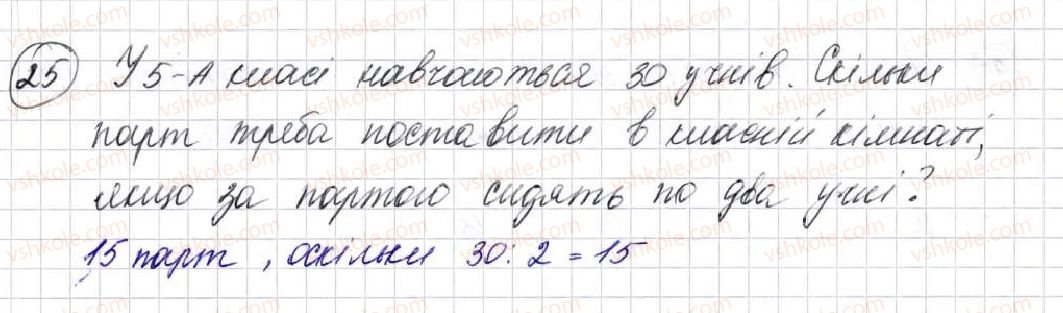 25 У 5-А класі навчаються 30 учнів. Скільки
парт треба поставити в класній кімнаті,
якщо за партою сидять по два учні?
15 парт, оскільки 30:2=15